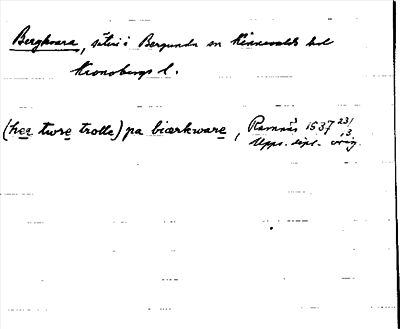 Bergkvara, säteri i Bergunda sn Kinnevalds hd
Kronobergs l.
(hee twre trolle) pa biærkware, Ramnäs 1537 23/13
Upps. dipl. orig.